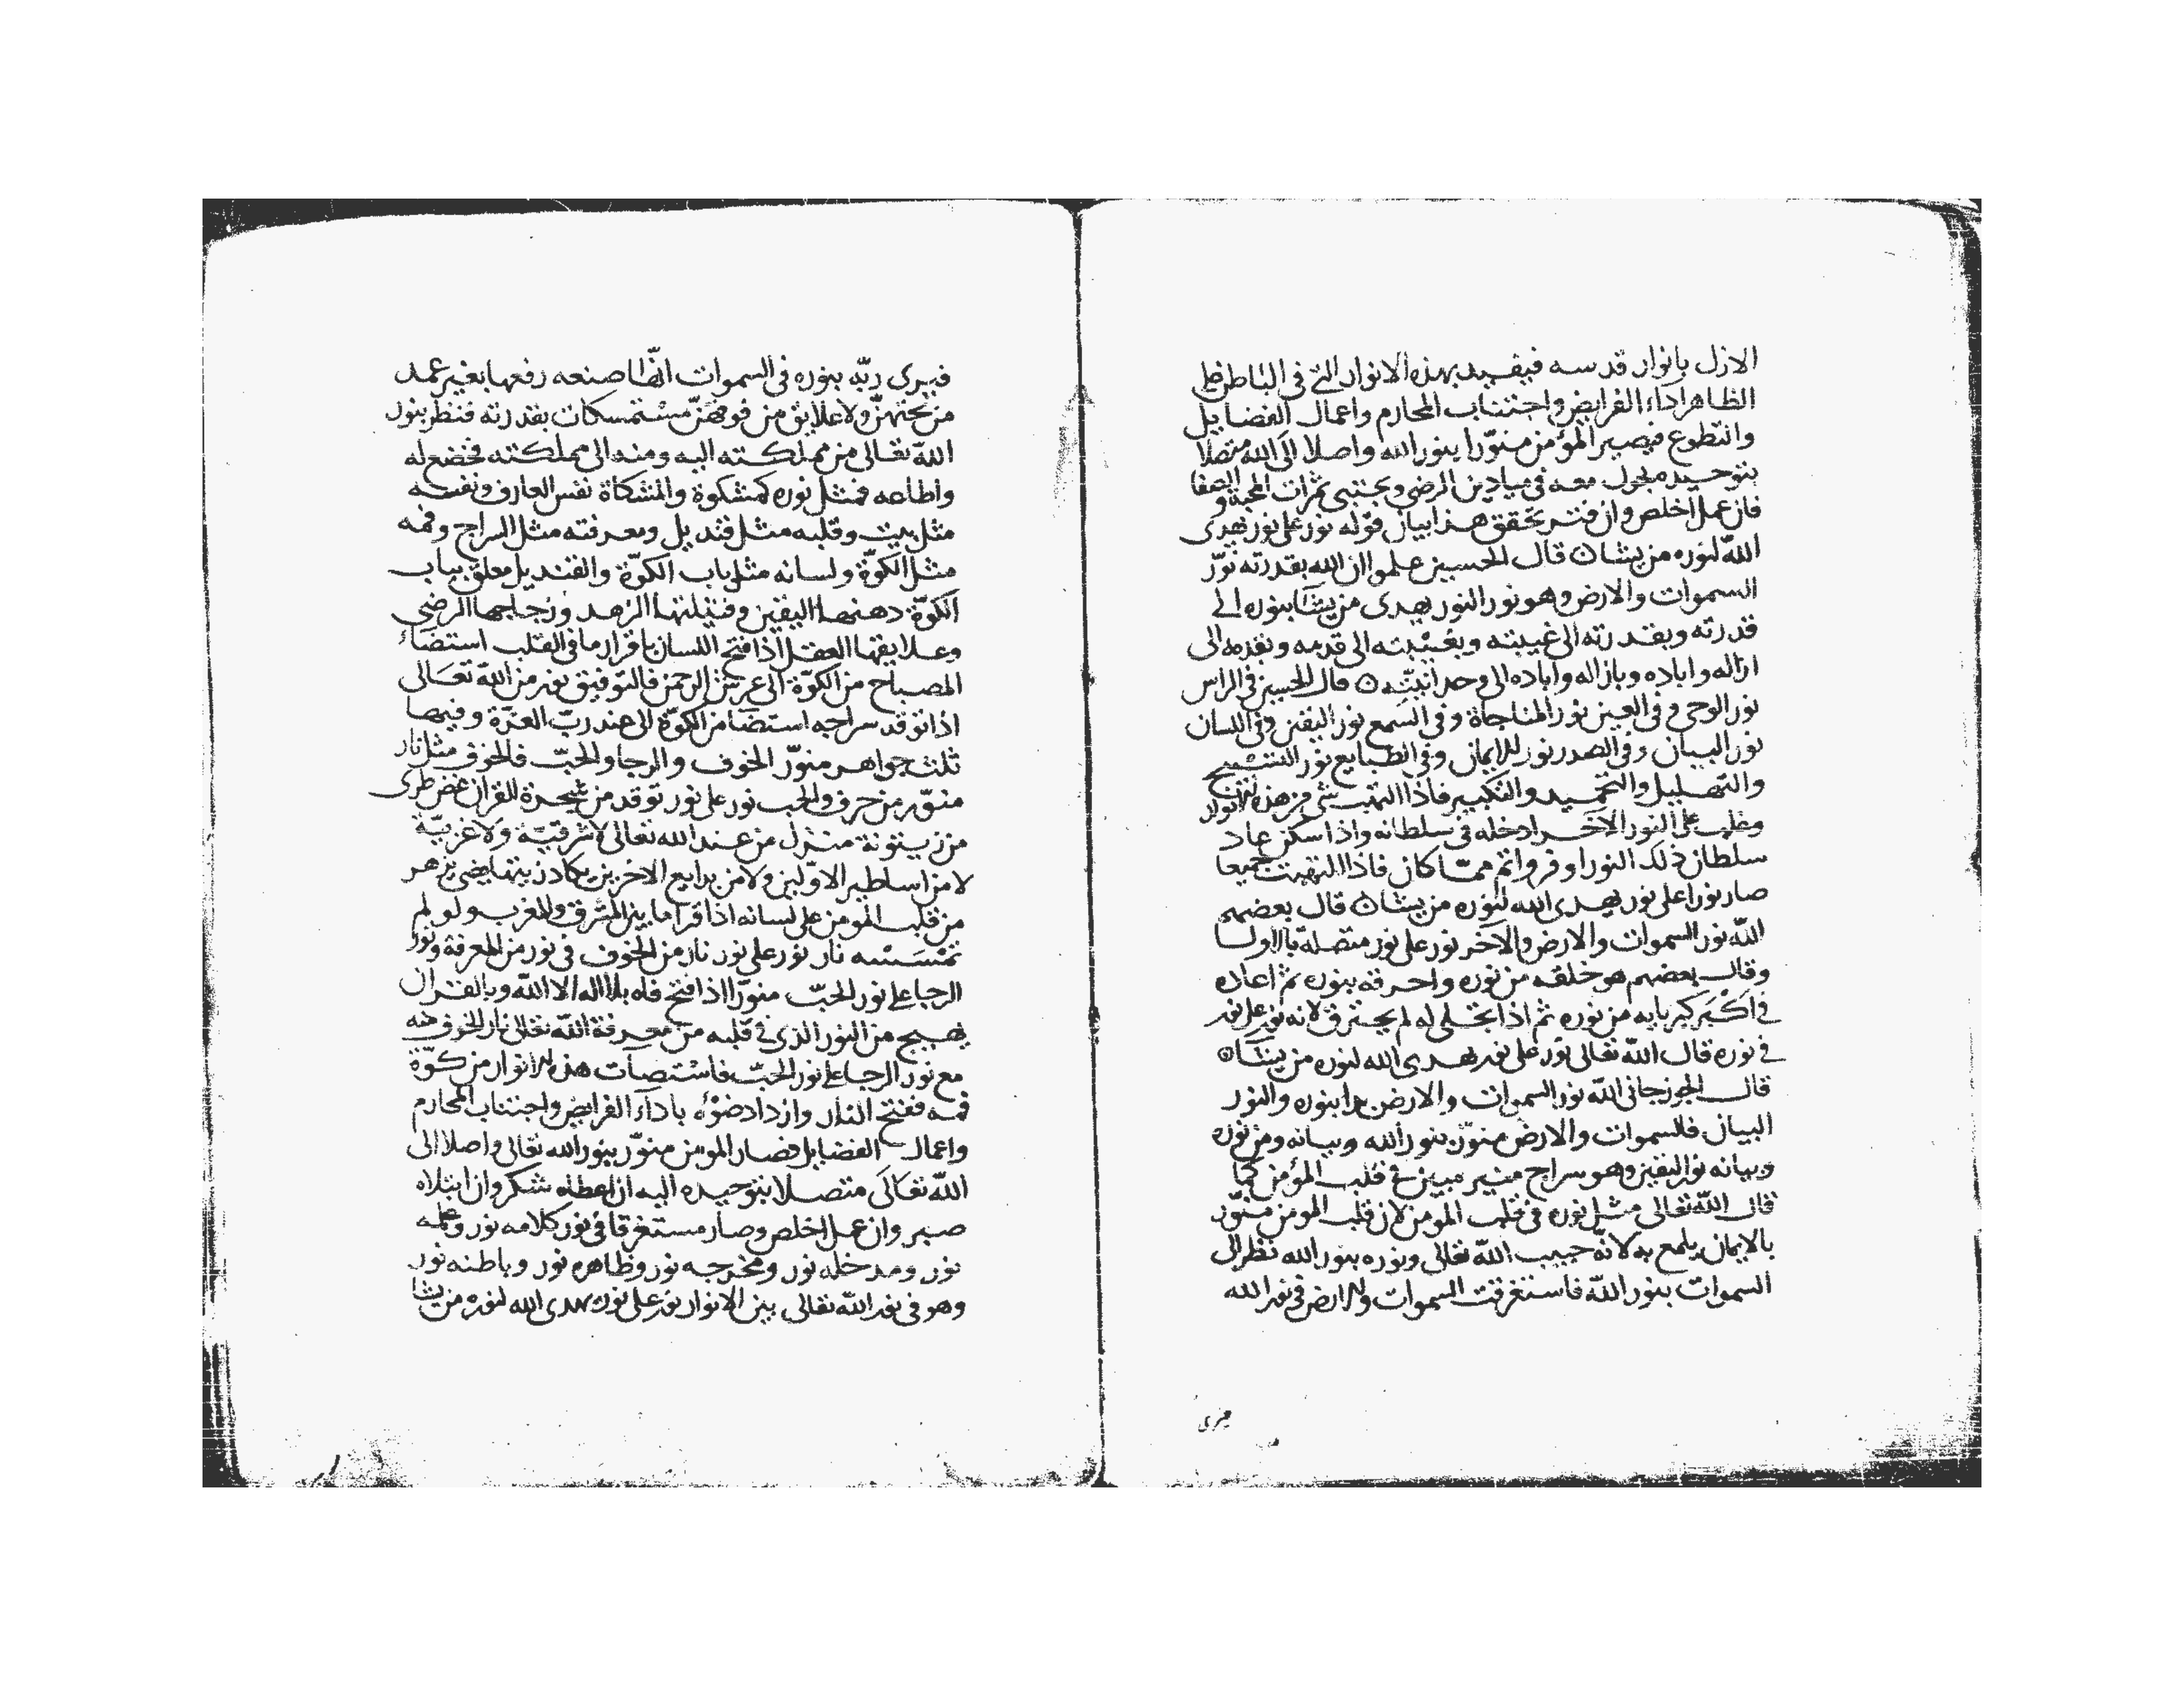 الازل بانوار قدسه فيفيد بهذه الانوار التي في الباطن على
الظاهر اداء الفرايض واجتناب المحارم واعمال الفضايل
والتطوع فيصير المؤمن منوّرا بنور الله واصلا الى الله متصلا
بتوحيده يجول معه في ميادين الرضى ويجتبى ثمرات المحبة و الصفا
فان عمل اخلص وان فتر تحقق هذا بيان قوله نور على نور يهدى
الله لنوره من يشا ن قال الحسين علموا ان الله بقدرته نوّر
السموات والارض وهو نور النور يهدى من يشا بنوره الى
قدرته وبقدرته الى غيبته وبغيبته الى قدمه وبقدمه الى
ازاله واباده وبازاله واباده الى وحدانيته ن قال الحسين في الراس
نور الوحى وفي العين نور المناجاة وفي السمع نور اليقين وفي اللسان
نور البيان وفي الصدر نور الايمان وفي الطبايع نور التسبيح
والتهليل والتحميد والتكبير فاذا التهب شى من هذه الانوار
وغلب على النور الاخر ادخله في سلطانه واذا سكن عاد
سلطان ذلك النور اوفر واتم مما كان فاذا التهبت جميعا
صار نورا على نور يهدى الله لنوره من يشا ن قال بعضهم
الله نور السموات والارض والآخر نور على نور متصلة بالاول
وقال بعضهم هو خلقه من نوره واحرقه بنوره ثم اعاده
في اكبر كبريايه من نوره ثم اذا تجلى له لم يحترق لانه نور على نور
في نوره قال الله تعالى نور على نور يهدى الله لنوره من يشا ن
قال الجوزجاني الله نور السموات والارض بدا بنوره والنور
البيان فالسموات والارض منوّرة بنور الله وبيانه ومن نوره
وبيانه نور اليقين وهو سراج منير مبين في قلب المؤمن كما
قال الله تعالى مثل نوره في قلب المومن لان قلب المومن منوّر
بالايمان يلمع به لانّه حبيب الله تعالى ونوره بنور الله نظر الى
السموات بنور الله فاستغرقت السموات والارض في نور الله
فيرى ربّه بنوره في السموات انّها صنعه رفعها بغير عمد
من تحتهنّ ولا علايق من فوقهنّ مستمسكات بقدرته فنظر بنور
الله تعالى من مملكته اليه ومنه الى مملكته فخضع له
واطاعه فمثل نوره كمشكوة والمشكاة نفس العارف ونفسه
مثل بيت وقلبه مثل قنديل ومعرفته مثل السراج وفمه
مثل الكوّة ولسانه مثل باب الكوّة والقنديل معلق بباب
الكوّة دهنها اليقين وفتيلتها الزهد وزجاجها الرضى
وعلايقها العقل اذا فتح اللسان باقرار ما في القلب استضاء
المصباح من الكوّة الى عرش الرحمن فالتوفيق نور من الله تعالى
اذا توقد سراجه استضا من الكوّة الى عند ربّ العزة وفيها
ثلث جواهر منوّر الخوف والرجا والحبّ فالخوف مثل نار
منوّر من حرف والحب نور على نور توقد من شجرة القران غض طرى
من زيتونة منزل من عند الله تعالى لا شرقيّة ولا غربيّة
لا من اساطير الاوّلين ولا من بدايع الاخرين يكاد زيتها يضى يزهر
من قلب المومن على لسانه اذا قرا ما بين المشرق والمغرب ولو لم
تمسسه نار نور على نور نار من الخوف في نور من المعرفة ونور
الرجا على نور الحبّ منوّرا اذا فتح فاه بلا اله الا الله وبالقران
يهيج من النور الذى في قلبه من معرفة الله تعالى نار الخوف
مع نور الرجا على نور الحبّ فاستضآت هذه الانوار من كوّة
فمه ففتح النار وازداد ضوءه باداء الفرايض واجتناب المحارم
واعمال الفضايل فصار المومن منوّر بنور الله تعالى واصلا الى
الله تعالى متصلا بتوحيده اليه ان اعطاه شكر وان ابتلاه
صبر وان عمل اخلص وصار مستغرقا في نور كلامه نور وعلمه
نور ومدخله نور ومخرجه نور وظاهره نور وباطنه نور
وهو في نور الله تعالى بين الانوار نور على نور يهدى الله لنوره من يشا